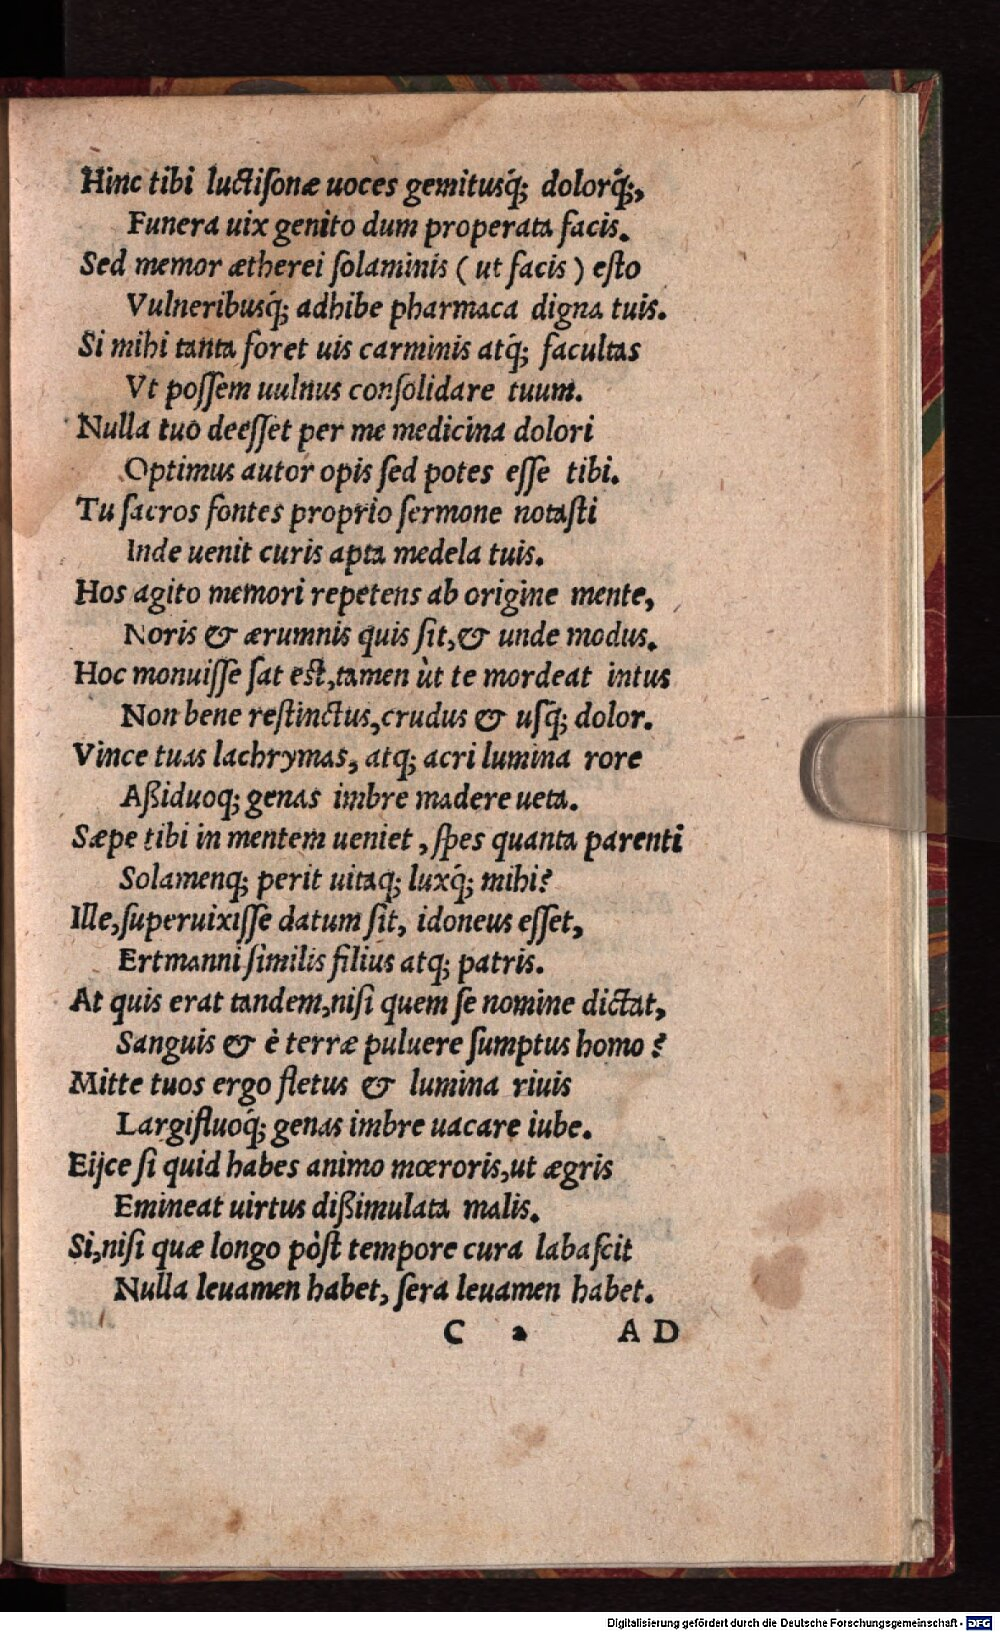 Hinc tibi luctisonæ uoces gemitusq́; dolorq́;,
Funera uix genito dum properata facis.
Sed memor ætherei solaminis ( ut facis ) esto
Vulneribusq́; adhibe pharmaca digna tuis.
Si mihi tanta foret uis carminis atq́; facultas
Vt possem uulnus consolidare tuum.
Nulla tuo deesset per me medicina dolori
Optimus autor opis sed potes esse tibi.
Tu sacros fontes proprio sermone notasti
Inde uenit curis apta medela tuis.
Hos agito memori repetens ab origine mente,
Noris & ærumnis quis sit,& unde modus.
Hoc monuisse sat est,tamen ùt te mordeat intus
Non bene restinctus,crudus & usq́; dolor.
Vince tuas lachrymas, atq; acri lumina rore
Aßiduoq; genas imbre madere ueta.
Sæpe tibi in mentem ueniet , spes quanta parenti
Solamenq; perit uitaq; luxq́; mihi?
Ille,superuixisse datum sit, idoneus esset,
Ertmanni similis filius atq; patris.
At quis erat tandem,nisi quem se nomine dictat,
Sanguis & è terræ puluere sumptus homo ?
Mitte tuos ergo fletus & lumina riuis
Largifluoq́; genas imbre uacare iube.
Eijce si quid habes animo mœroris,ut ægris
Emineat uirtus dißimulata malis.
Si,nisi quæ longo pòst tempore cura labascit
Nulla leuamen habet, sera leuamen habet.
C 2 AD
Digitalisierung gefördert durch die Deutsche Forschungsgemeinschaft - DFG